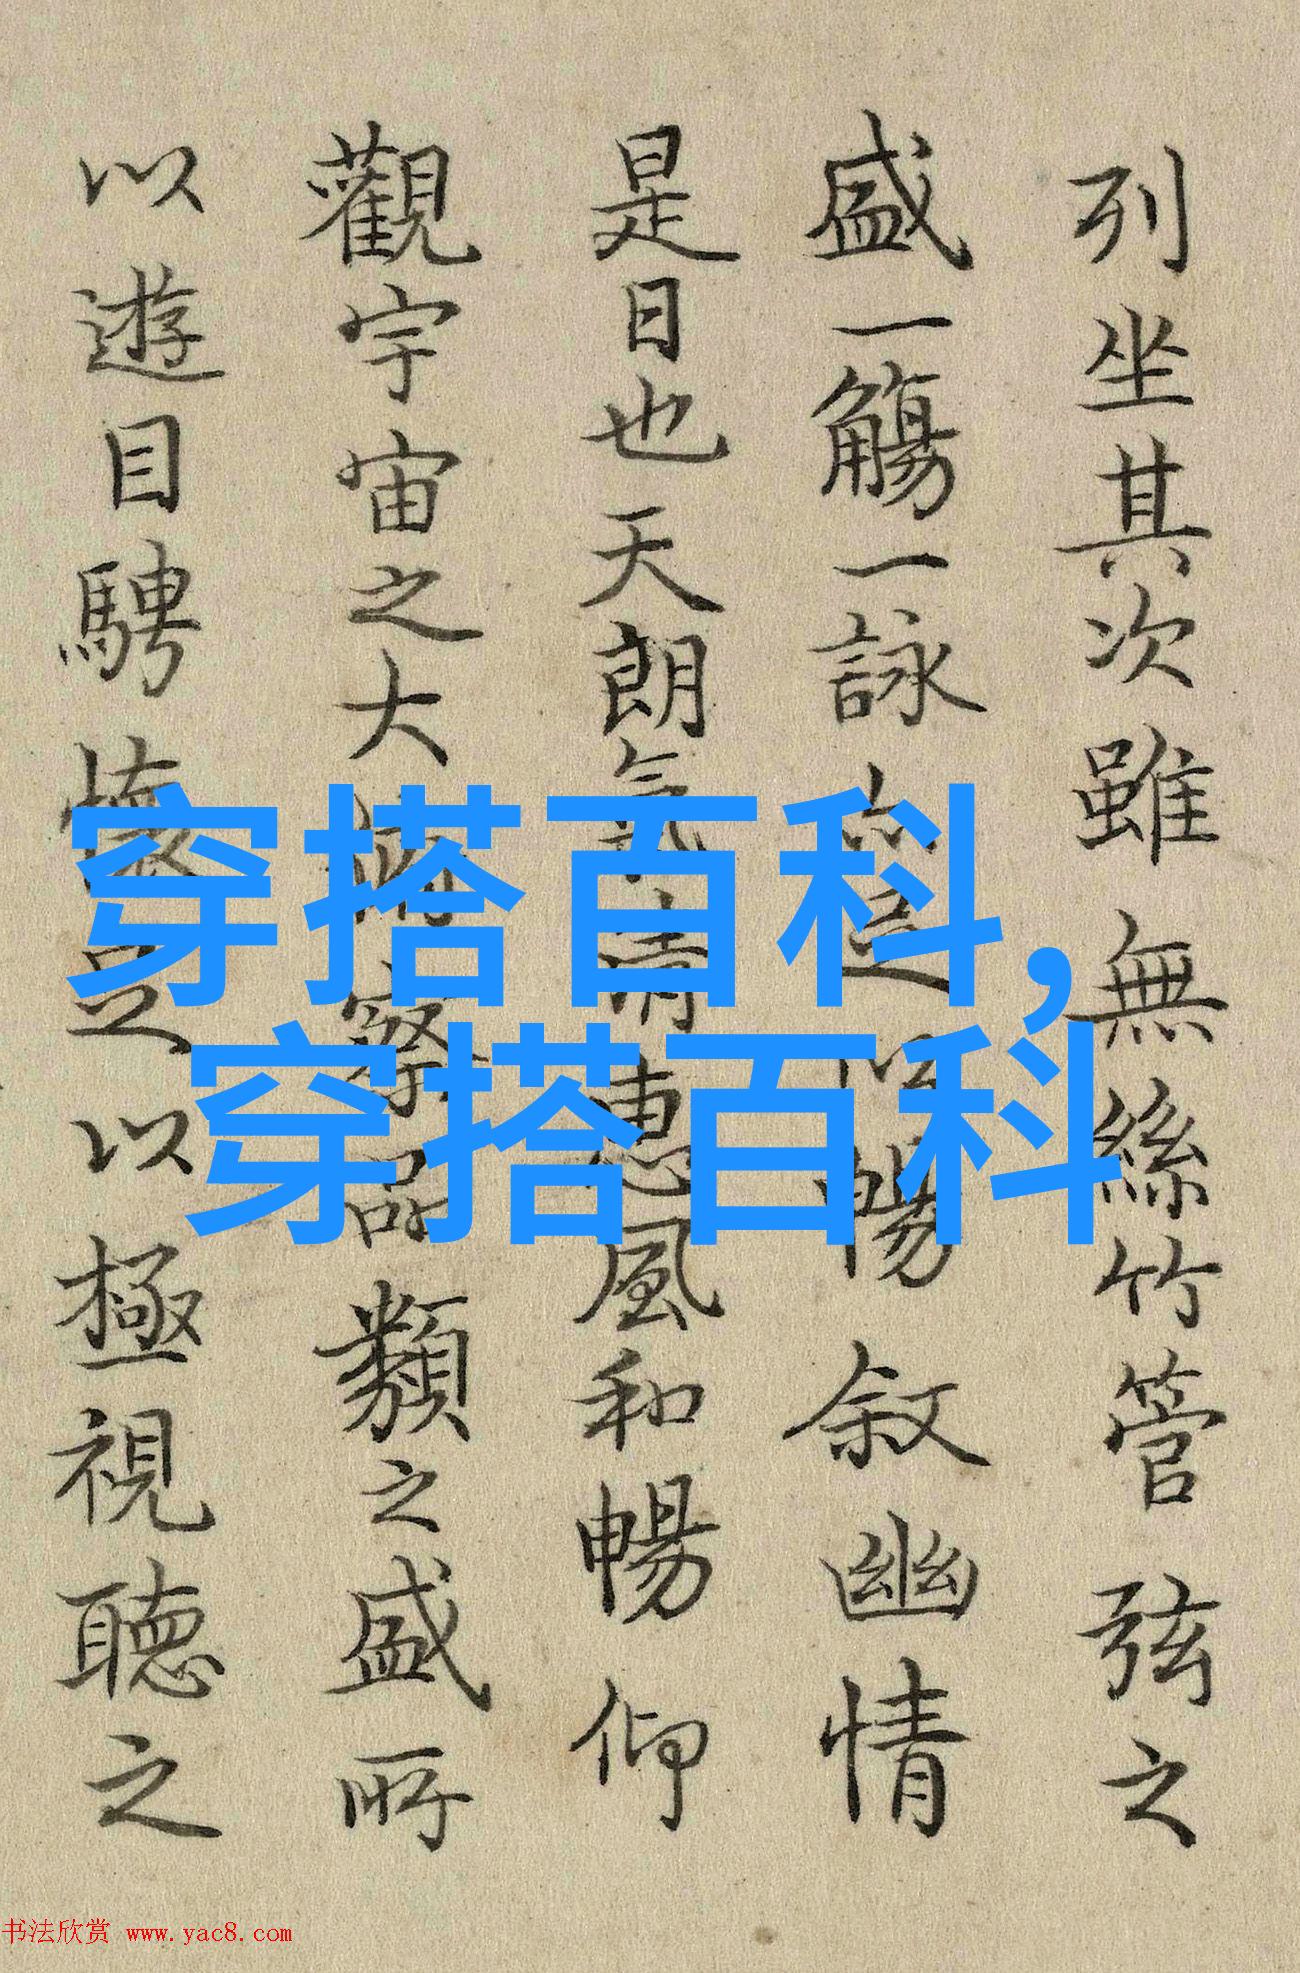 列坐其次雖無絲竹管弦之
盛一觴一詠亦足以暢叙幽情
是日也天朗氣清惠風和暢仰
觀宇宙之大俯察品類之盛所
以遊目騁懷足以極視聽之
穿搭百科,
穿搭百科
书法欣赏 www.yac8.com